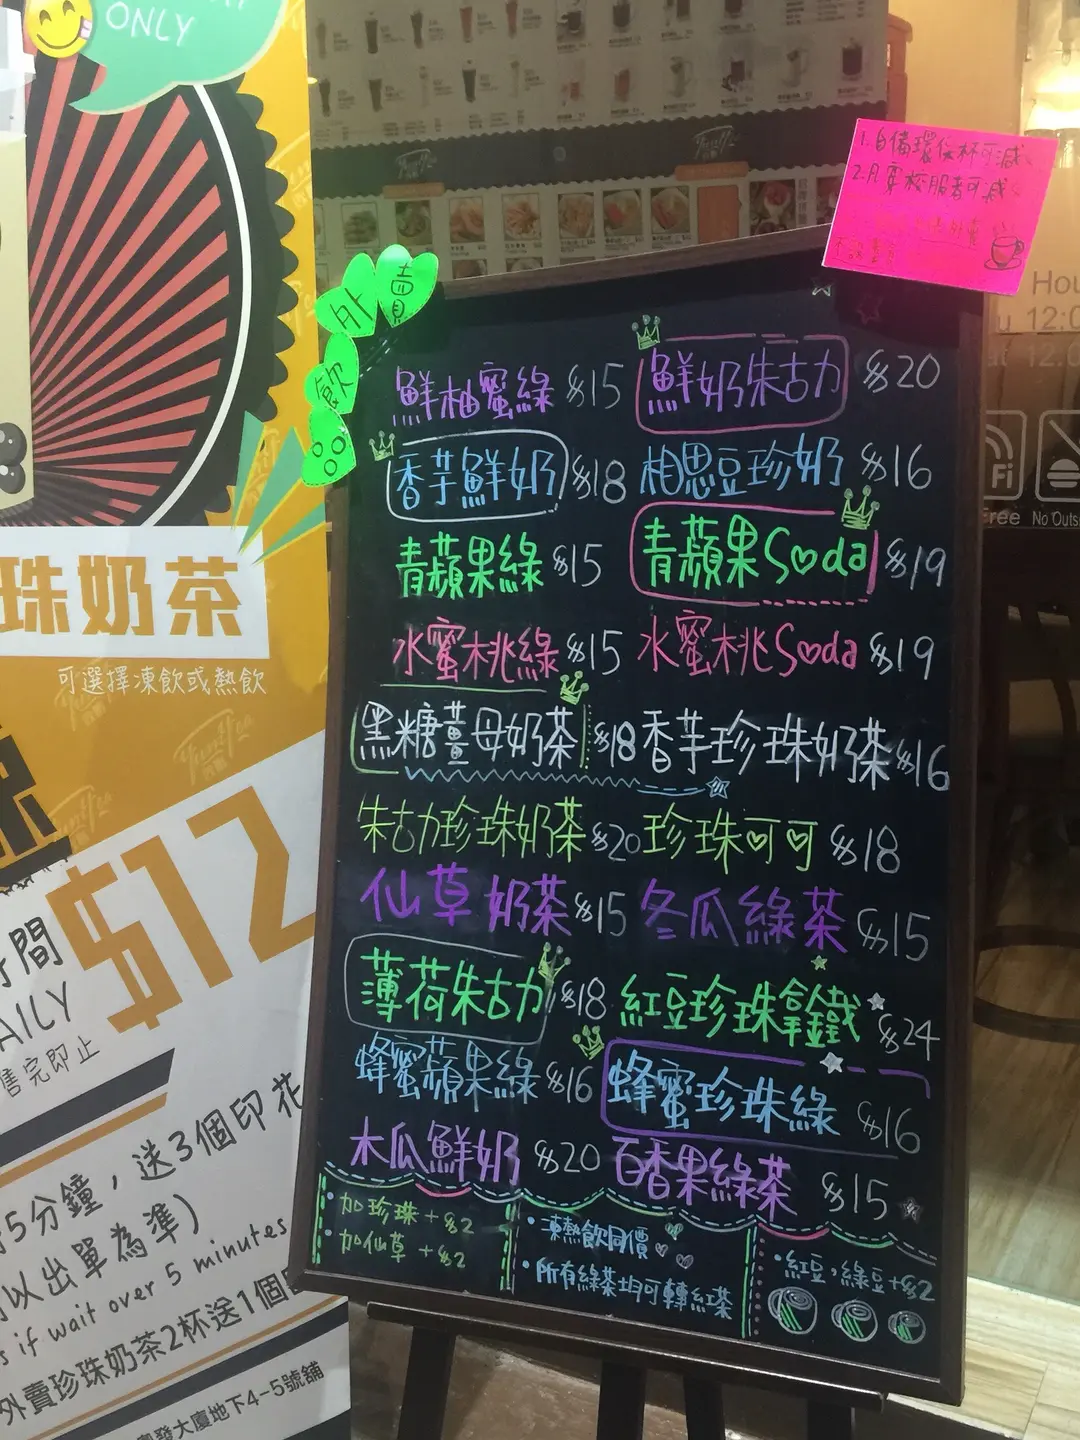 ONLY
1.自備環保杯可減
2.凡穿校服者可減
外賣飲
鮮柚蜜綠 $15 鮮奶朱古力 $20
香芋鮮奶 $18 相思豆珍奶 $16
青蘋果綠 $15 青蘋果Soda $19
水蜜桃綠 $15 水蜜桃Soda $19
黑糖薑母奶茶 $18 香芋珍珠奶茶 $16
朱古力珍珠奶茶 $20 珍珠可可 $18
仙草奶茶 $15 冬瓜綠茶 $15
薄荷朱古力 $18 紅豆珍珠拿鐵 $24
蜂蜜蘋果綠 $16 蜂蜜珍珠綠 $16
木瓜鮮奶 $20 百香果綠茶 $15
加珍珠+$2
加仙草+$2
凍熱飲同價
所有綠茶均可轉紅茶
紅豆,綠豆+$2
珠奶茶
可選擇凍飲或熱飲
$12
時間
AILY
售完即止
5分鐘，送3個印花
以出單為準)
s if wait over 5 minutes
外賣珍珠奶茶2杯送1個
發大廈地下4-5號舖
Hou
12:0
12:0
Fi
Free
No Outs